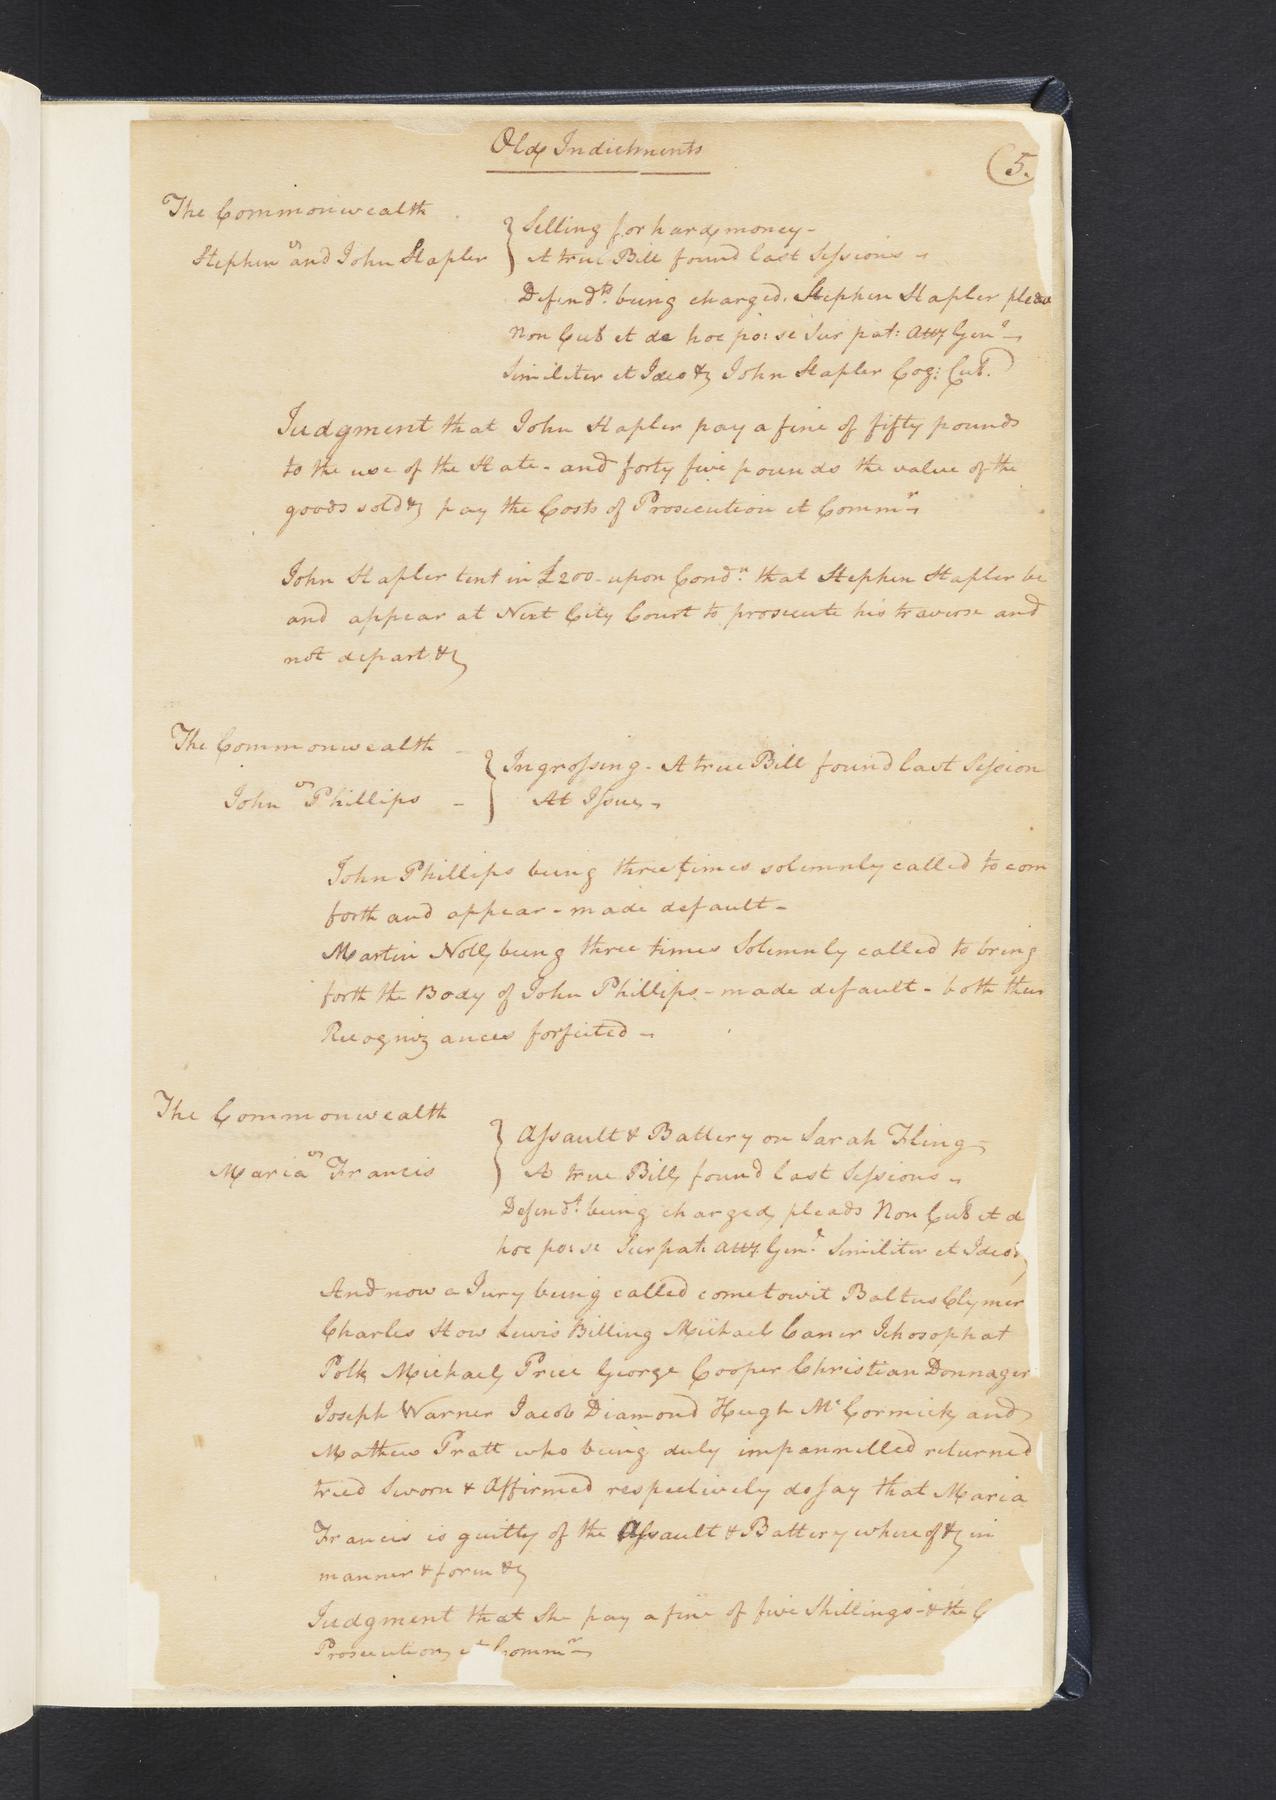 Old Indictments
5.
The Commonwealth
vs
Stephen and John Stapler
Selling for hard money -
A true Bill found last Sessions -
Defendts. being charged. Stephen Stapler pleads
Non Cul et de hoc po: se Sur pat: Atty Genl
Similiter et Ideo &c John Stapler Cog: Cul.
Judgment that John Stapler pay a fine of fifty pounds
to the use of the State - and forty five pounds the value of the
goods sold & pay the Costs of Prosecution et Commr
John Stapler tent in £200 - upon Condn. that Stephen Stapler be
and appear at Next City Court to prosecute his traverse and
not depart &c
The Commonwealth -
vs
John Phillips -
Ingrossing - A true Bill found last Session
At Issue -
John Phillips being three times solemnly called to com
forth and appear - made default -
Martin Noll being three times Solemnly called to bring
forth the Body of John Phillips - made default - both their
Recognizances forfeited -
The Commonwealth
vs
Maria Francis
Assault & Battery on Sarah Fling
A true Bill found last Sessions -
Defendt. being charged pleads Non Cul et d
hoc po: se Sur pat: Atty Genl. Similiter et Ideo
And now a Jury being called come to wit Baltus Clymer
Charles Stow Lewis Billing Michael Caner Jehosophat
Polk Michael Price George Cooper Christian Donnager
Joseph Warner Jacob Diamond Hugh McCormick and
Mathew Pratt who being duly impannelled returned
tried Sworn & Affirmed respectively do say that Maria
Francis is guilty of the Assault & Battery whereof &c in
manner & form &c
Judgment that She pay a fine of five Shillings - & the C
Prosecution et Commr